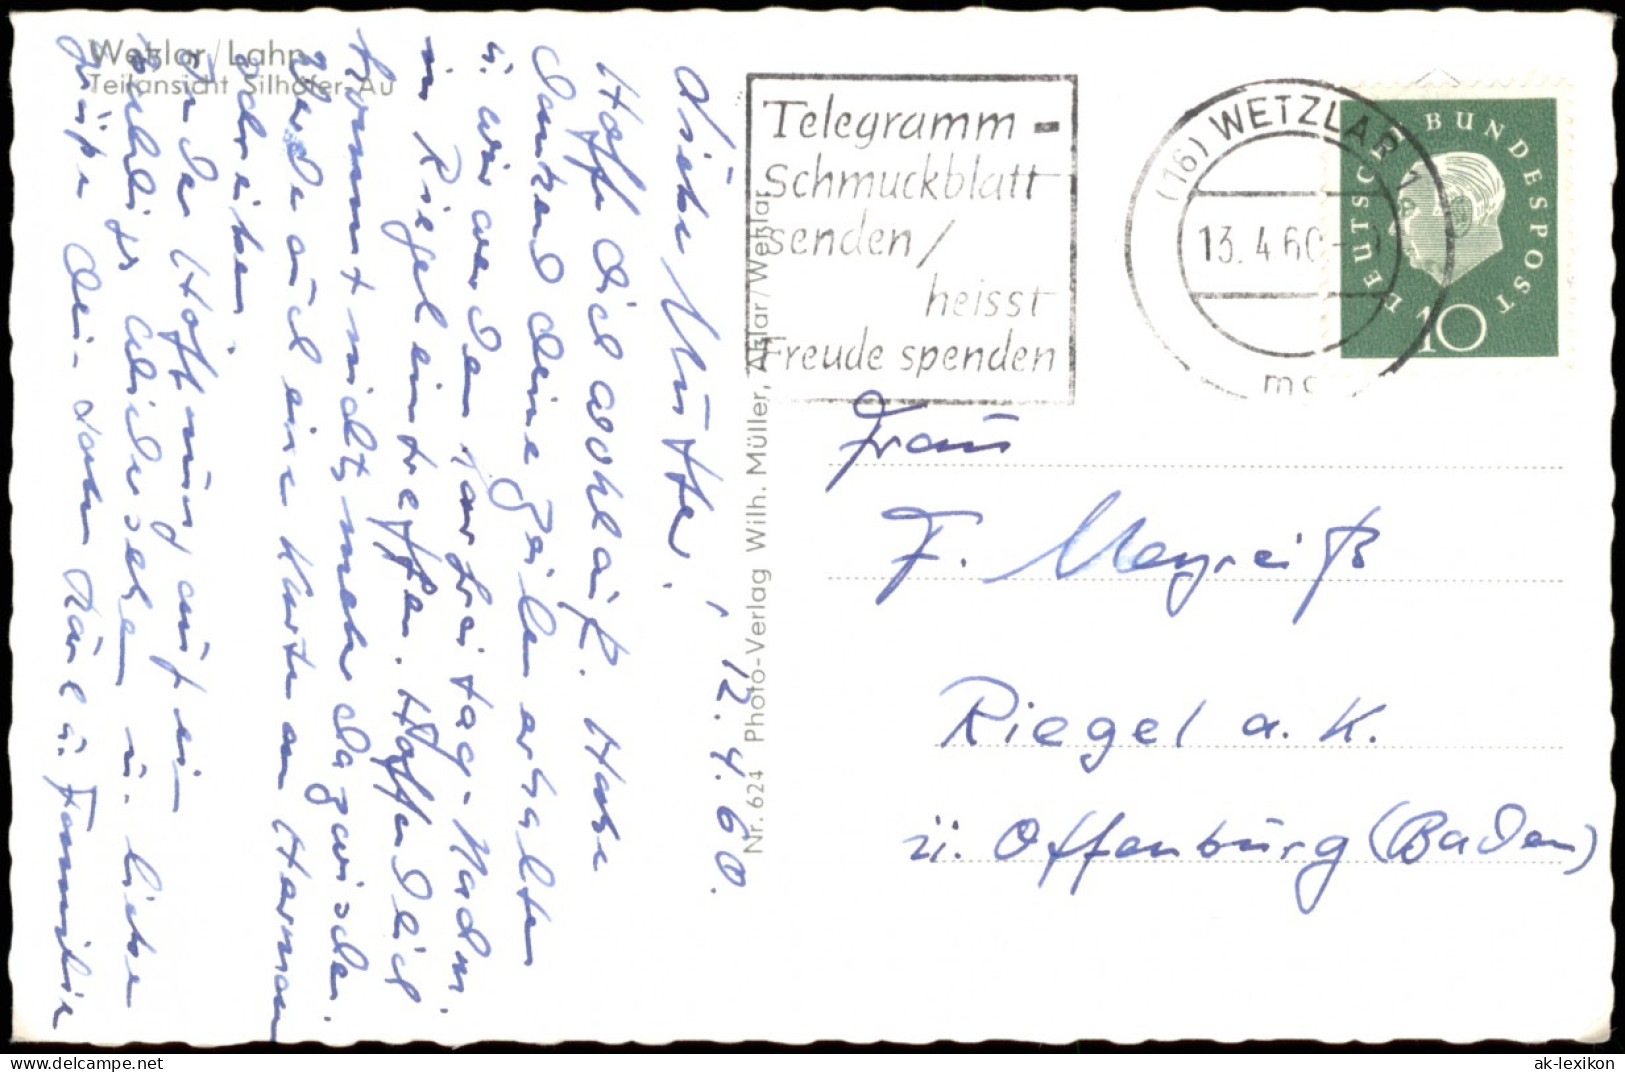 Wetzlar/Lahn
Teilansicht Silhöfer-Au
Liebe Mutter, 12.4.60.
Hoffe dich wohlauf. Habe
dankend deine Zeilen erhalten
u. wir werden Karfreitag-Nachm.
in Riegel eintreffen. Hoffendlich
kommt nichts mehr dazwischen.
Werde auch eine Karte an Herman
schreiben.
In der Hoffnung auf ein
Wiedersehen u. liebe
Grüße dein Sohn Karl u. Familie
Nr. 624 Photo-Verlag Wilh. Müller, Aßlar/Wetzlar
Telegramm-
Schmuckblatt
senden/
heisst
Freude spenden
(16) WETZLAR 1
13.4.60
mc
DEUTSCHE BUNDESPOST
10
Frau
F. Meyreiß
Riegel a. K.
ü. Offenburg (Baden)
ak-lexikon